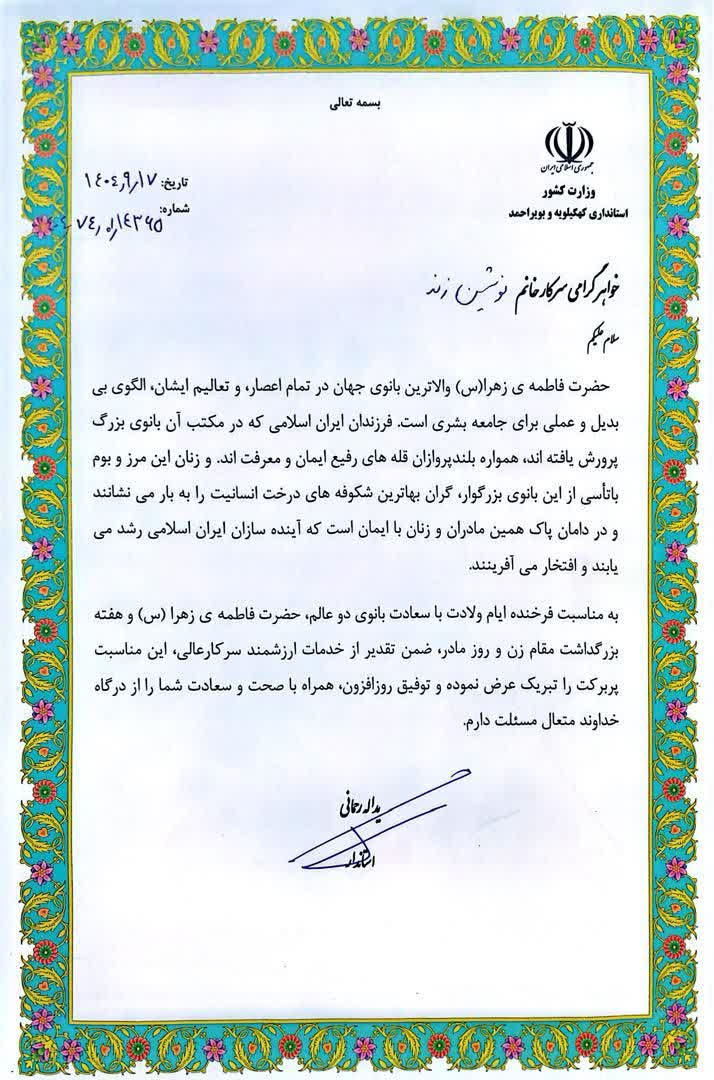 بسمه تعالی
جمهوری اسلامی ایران
وزارت کشور
استانداری کهگیلویه و بویراحمد
تاریخ: ۱۴۰۴٫۹٫۱۷
شماره:
خواهر گرامی سرکار خانم نوشین زند
سلام علیکم
حضرت فاطمه ی زهرا(س) والاترین بانوی جهان در تمام اعصار، و تعالیم ایشان، الگوی بی
بدیل و عملی برای جامعه بشری است. فرزندان ایران اسلامی که در مکتب آن بانوی بزرگ
پرورش یافته اند، همواره بلندپروازان قله های رفیع ایمان و معرفت اند. و زنان این مرز و بوم
باتأسی از این بانوی بزرگوار، گران بهاترین شکوفه های درخت انسانیت را به بار می نشانند
و در دامان پاک همین مادران و زنان با ایمان است که آینده سازان ایران اسلامی رشد می
یابند و افتخار می آفرینند.
به مناسبت فرخنده ایام ولادت با سعادت بانوی دو عالم، حضرت فاطمه ی زهرا (س) و هفته
بزرگداشت مقام زن و روز مادر، ضمن تقدیر از خدمات ارزشمند سرکارعالی، این مناسبت
پربرکت را تبریک عرض نموده و توفیق روزافزون، همراه با صحت و سعادت شما را از درگاه
خداوند متعال مسئلت دارم.
یداله رحمانی
استاندار